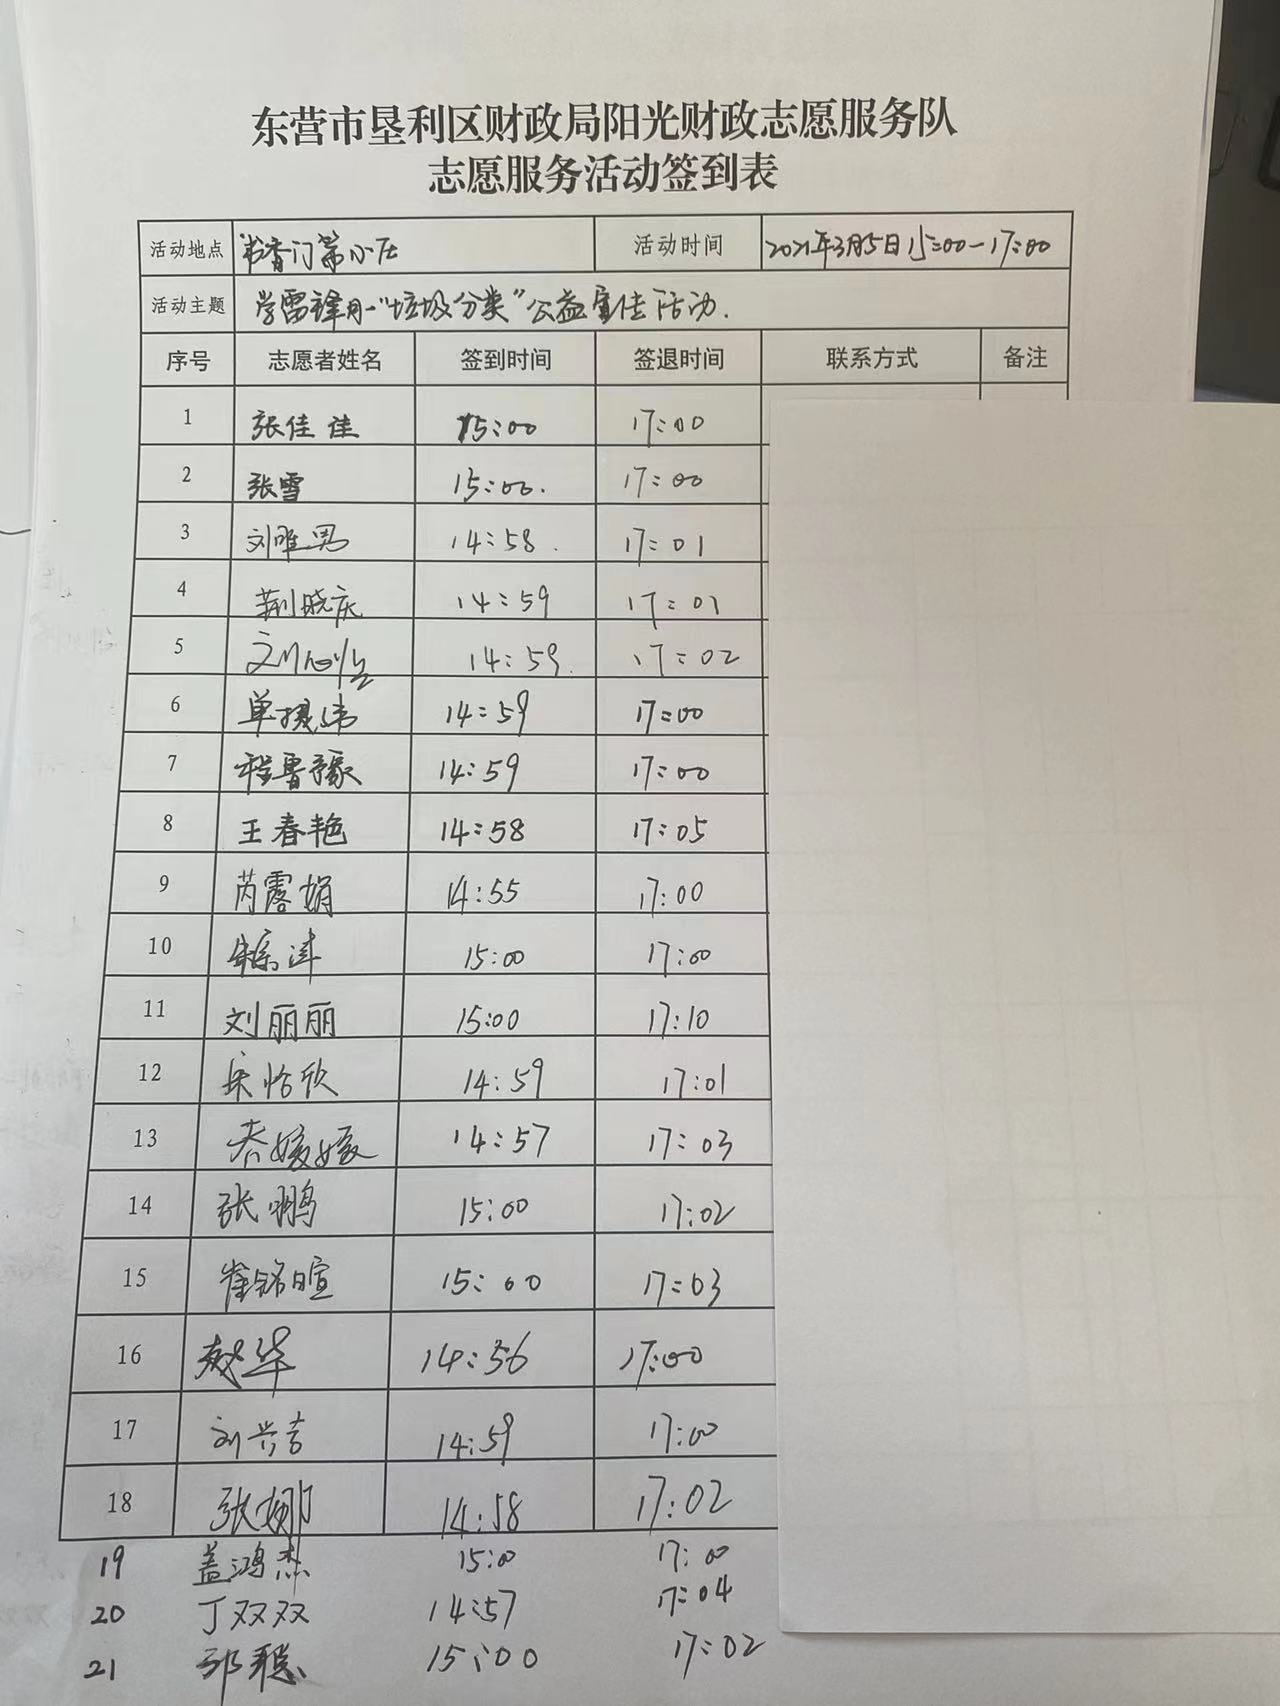 东营市垦利区财政局阳光财政志愿服务队
志愿服务活动签到表
活动地点 书香门第小区 活动时间 2021年3月5日15:00-17:00
活动主题 学雷锋月-"垃圾分类"公益宣传活动.
序号 志愿者姓名 签到时间 签退时间 联系方式 备注
1 张佳佳 15:00 17:00
2 张雪 15:00. 17:00
3 刘唯男 14:58. 17:01
4 荆晓庆 14:59 17:01
5 刘心怡 14:59. 17:02
6 单 14:59 17:00
7 程鲁豫 14:59 17:00
8 王春艳 14:58 17:05
9 芮露娟 14:55 17:00
10 15:00 17:00
11 刘丽丽 15:00 17:10
12 宋怡欣 14:59 17:01
13 媛媛 14:57 17:03
14 张鹏 15:00 17:02
15 崔铭暄 15:00 17:03
16 赵华 14:56 17:00
17 刘兴吉 14:59 17:00
18 张娜 14:58 17:02
19 盖鸿杰 15:00 17:00
20 丁双双 14:57 17:04
21 邵聪 15:00 17:02